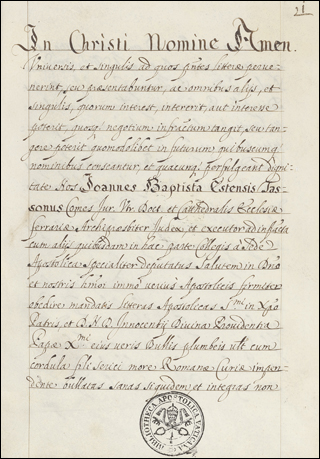 21
In Christi Nomine Amen.
Universis, et singulis ad quos pñtes litteræ perue-
nerint, seu præsentabuntur, ac omnibus alijs, et
singulis, quorum interest, intererit, aut interesse
poterit, quosq; negotium infractum tangit, seu tan-
gere poterit quomodolibet in futurum quibuscunq;
nominibus censeantur, et quacunq; porfulgeant digni-
tate Nos Joannes Baptista Estensis Tas-
sonus Comes Jur. Vtr. Doct. et Cathedralis Ecclesiæ
Ferrariæ Archipresbiter Judex, et executor ad infrãta
cum alijs quibusdam in hac parte Collegis a Sede
Apostolica Specialiter deputatus Salutem in Dño
et nostris himõi immo verius Apostolicis firmiter
obedire mandatis litteras Apostolicas S.mi in Xpõ
Patris, et D. N. D. Innocentij Divina Providentia
Papæ X.mi eius veris Bullis plumbeis
cordula
more Romanæ Curiæ impen-
dente bullatas sanas siquidem et integras non
BIBLIOTHECA APOSTOLICA VATICANA